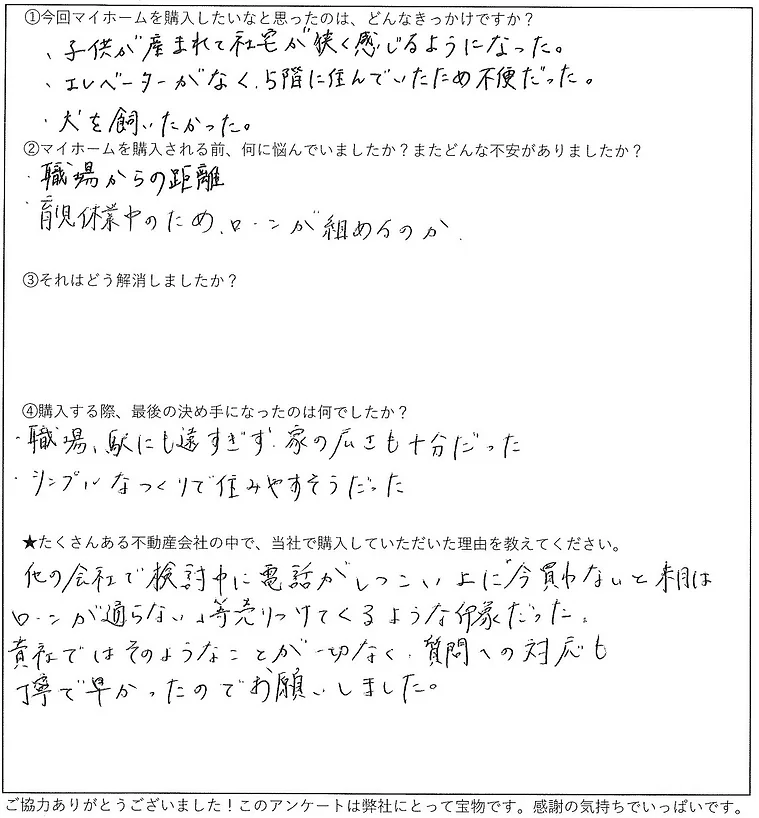 ①今回マイホームを購入したいなと思ったのは、どんなきっかけですか？
、子供が産まれて社宅が狭く感じるようになった。
・エレベーターがなく、5階に住んでいたため不便だった。
・犬を飼いたかった。
②マイホームを購入される前、何に悩んでいましたか？またどんな不安がありましたか？
・職場からの距離
・育児休業中のため、ローンが組めるのか.
③それはどう解消しましたか？
④購入する際、最後の決め手になったのは何でしたか？
・職場、駅にも遠すぎず、家の広さも十分だった
・シンプルなつくりで住みやすそうだった
★たくさんある不動産会社の中で、当社で購入していただいた理由を教えてください。
他の会社で検討中に電話がしつこい上に「今買わないと来月は
ローンが通らない」等売りつけてくるような印象だった。
貴社ではそのようなことが一切なく、質問への対応も
丁寧で早かったのでお願いしました。
ご協力ありがとうございました！このアンケートは弊社にとって宝物です。感謝の気持ちでいっぱいです。